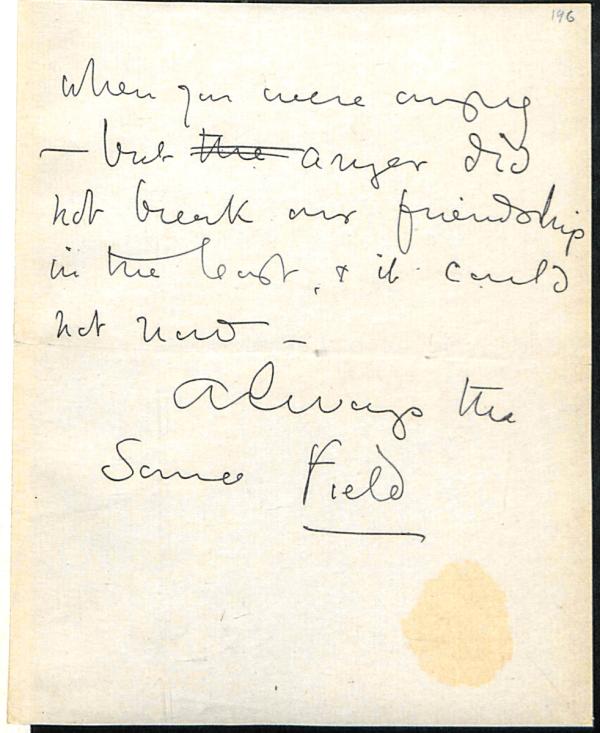 196
when you were angry
— but ~~the~~ anger did
not break our friendship
in the least, & it could
not now —
always the
same Field